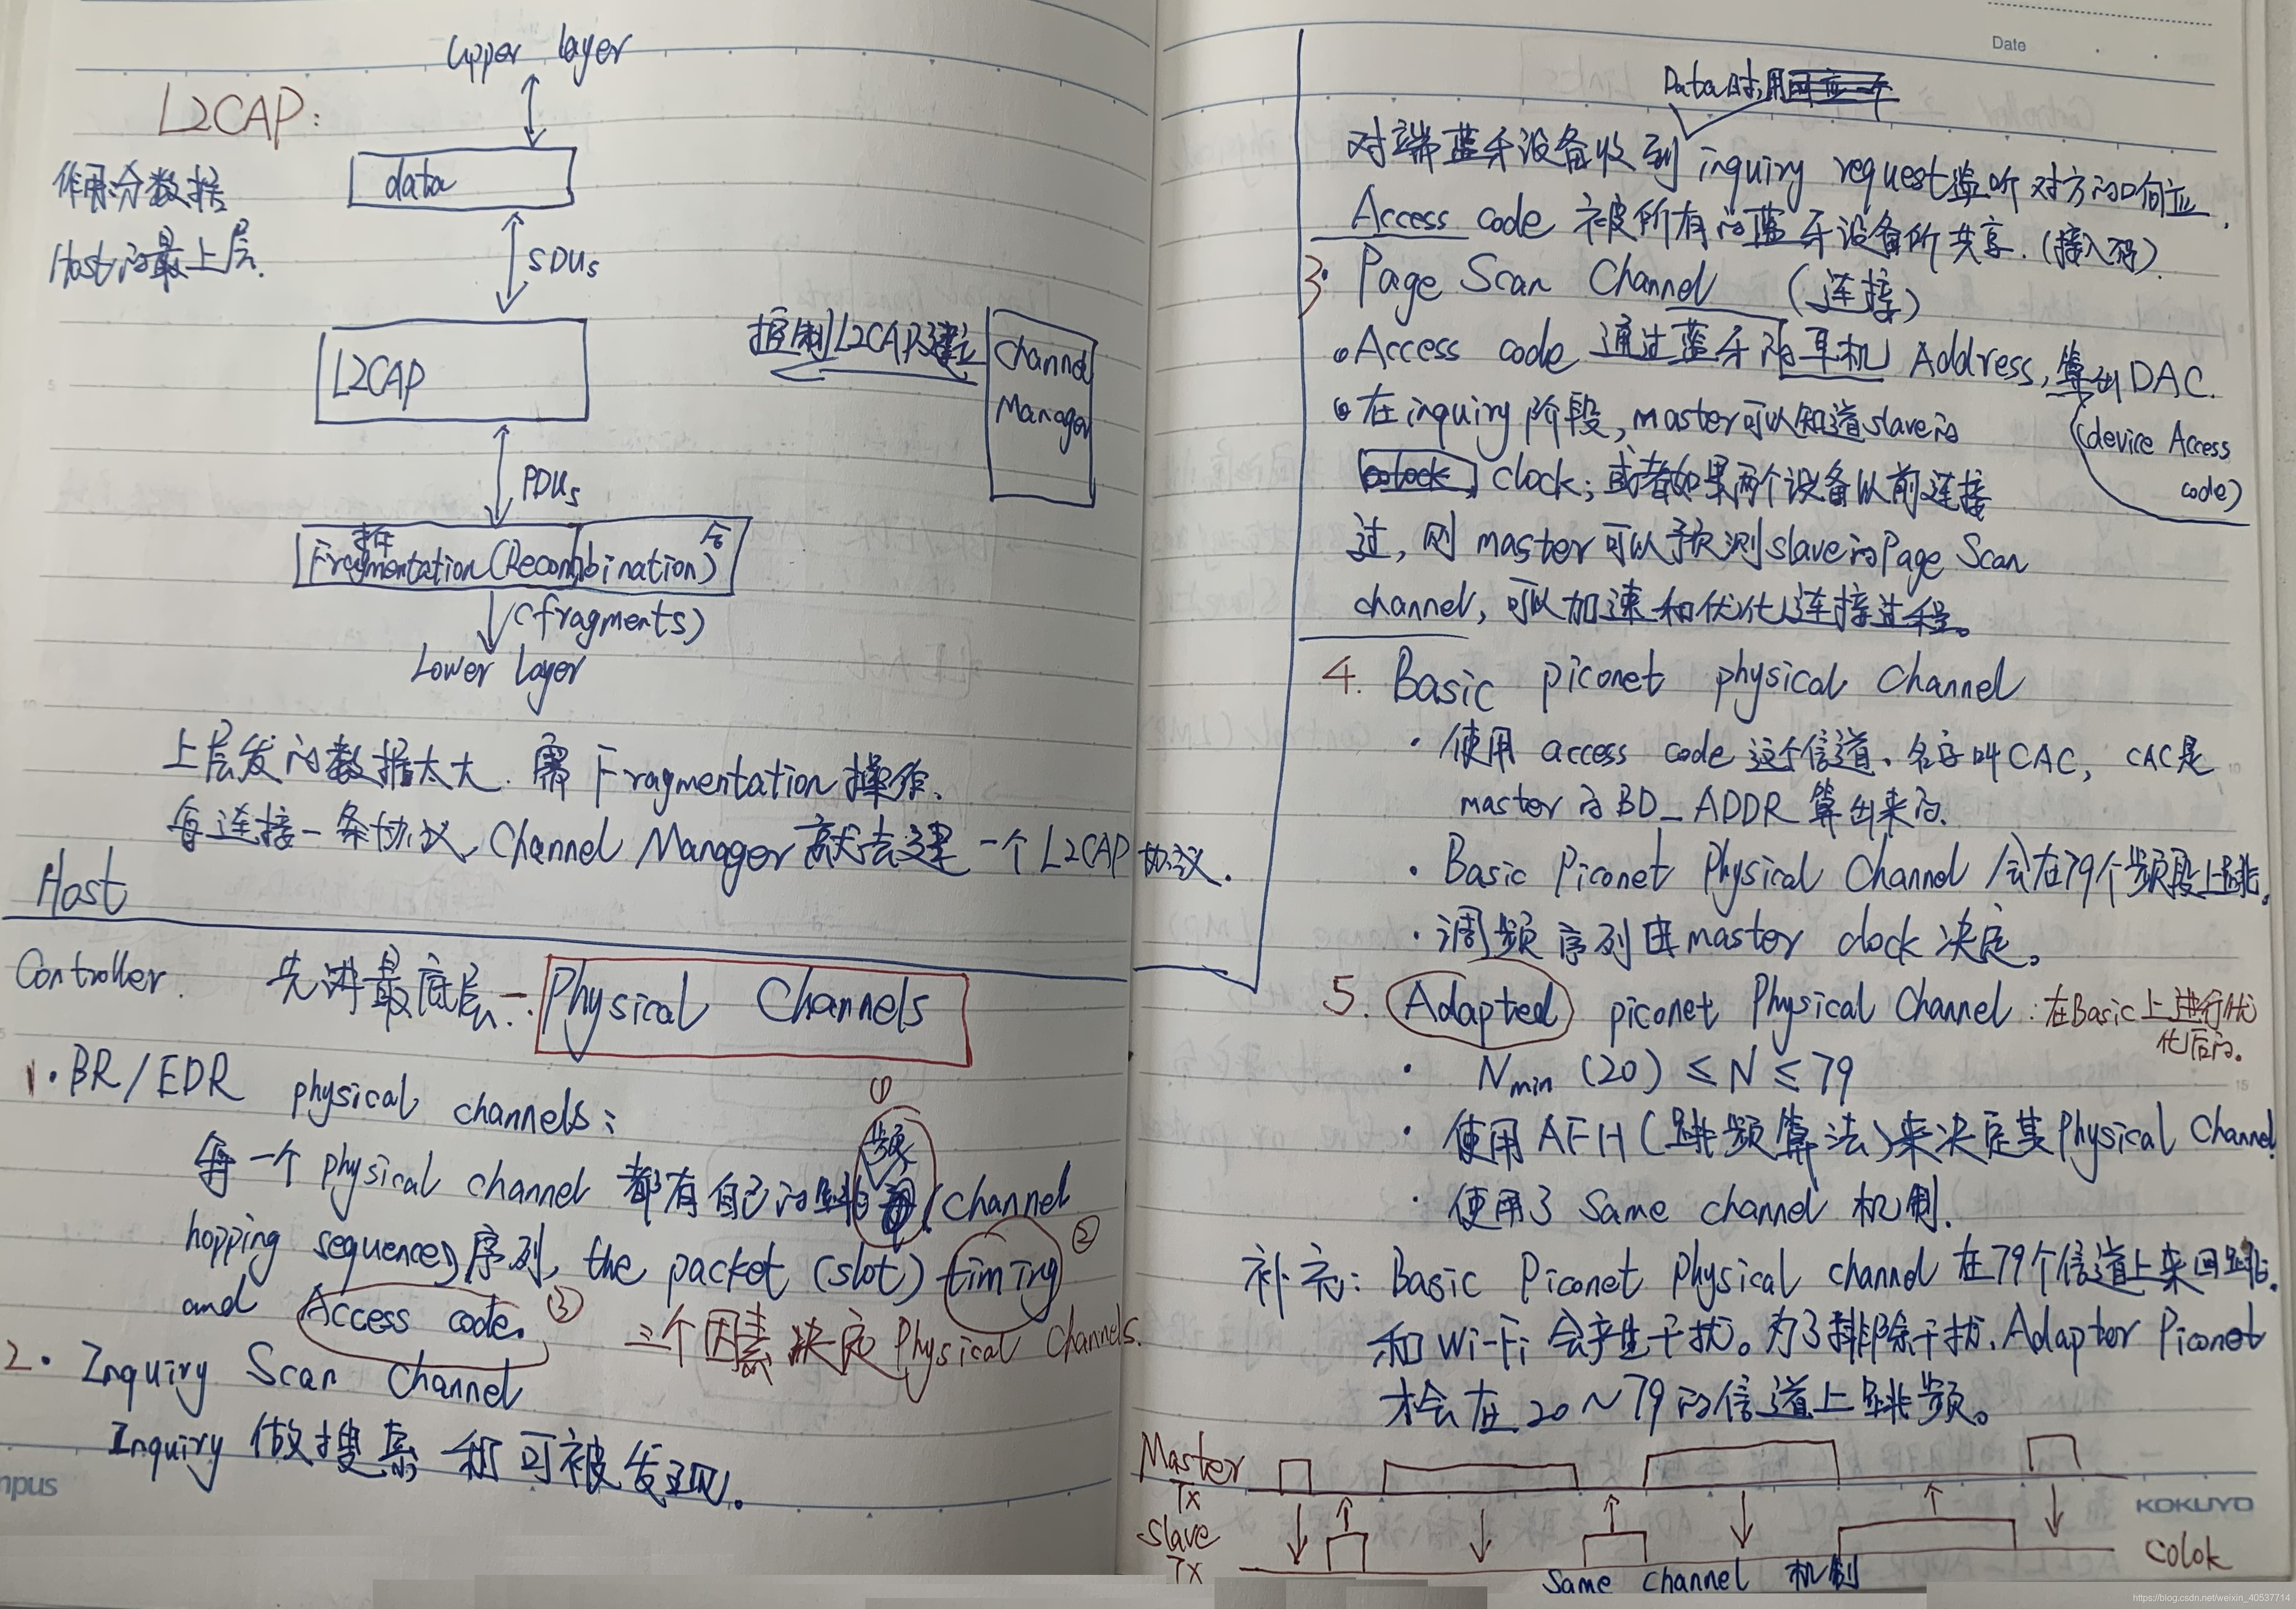 Upper layer
L2CAP:
data
作用:分数据
Host的最上层.
SDUs
L2CAP
控制L2CAP建立
Channel
Manager
PDUs
拆 合
Fragmentation(Recombination)
(fragments)
Lower layer
上层发的数据太大.需Fragmentation操作.
每连接一条协议,Channel Manager就去建一个L2CAP协议.
Host
Controller. 先讲最底层-: Physical Channels
1·BR/EDR physical channels:
①
频
每一个physical channel 都有自己的跳 (channel
hopping sequence)序列, the packet (slot) timing ②
and Access code. ③ 三个因素决定Physical Channels.
2. Inquiry Scan Channel
Inquiry 做搜索和可被发现.
mpus
Date
Data时,用
对端蓝牙设备收到inquiry request监听对方的响应.
Access code 被所有的蓝牙设备所共享.(接入码).
3. Page Scan Channel (连接)
Access code 通过蓝牙的耳机Address,算出DAC.
(device Access
code)
在inquiry阶段,master可以知道slave的
clock;或者如果两个设备以前连接
过,则master可以预测slave的Page Scan
channel,可以加速和优化连接过程。
4. Basic piconet physical Channel
·使用access code这个信道.名字叫CAC, CAC是
master的BD_ADDR算出来的.
·Basic Piconet Physical Channel会在79个频段上跳.
·调频序列由master clock决定。
5. Adapted piconet Physical Channel:在Basic上进行优
化后的.
· Nmin (20) ≤ N ≤ 79
·使用AFH(跳频算法)来决定其Physical Channel
·使用了Same channel机制.
补充: Basic Piconet Physical channel在79个信道上来回跳.
和Wi-Fi会产生干扰。为了排除干扰.Adapter Piconet
才会在20~79的信道上跳频。
Master
Tx
Slave
Tx
Same channel 机制
colok
KOKUYO
https://blog.csdn.net/weixin_40537714